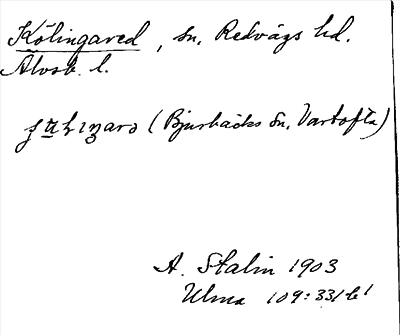 Kölingared, sn. Redvägs hd.
Älvsb. l.
(Bjurbäcks sn, Vartofta)
A. Stalin 1903
Ulma 109:331 b1